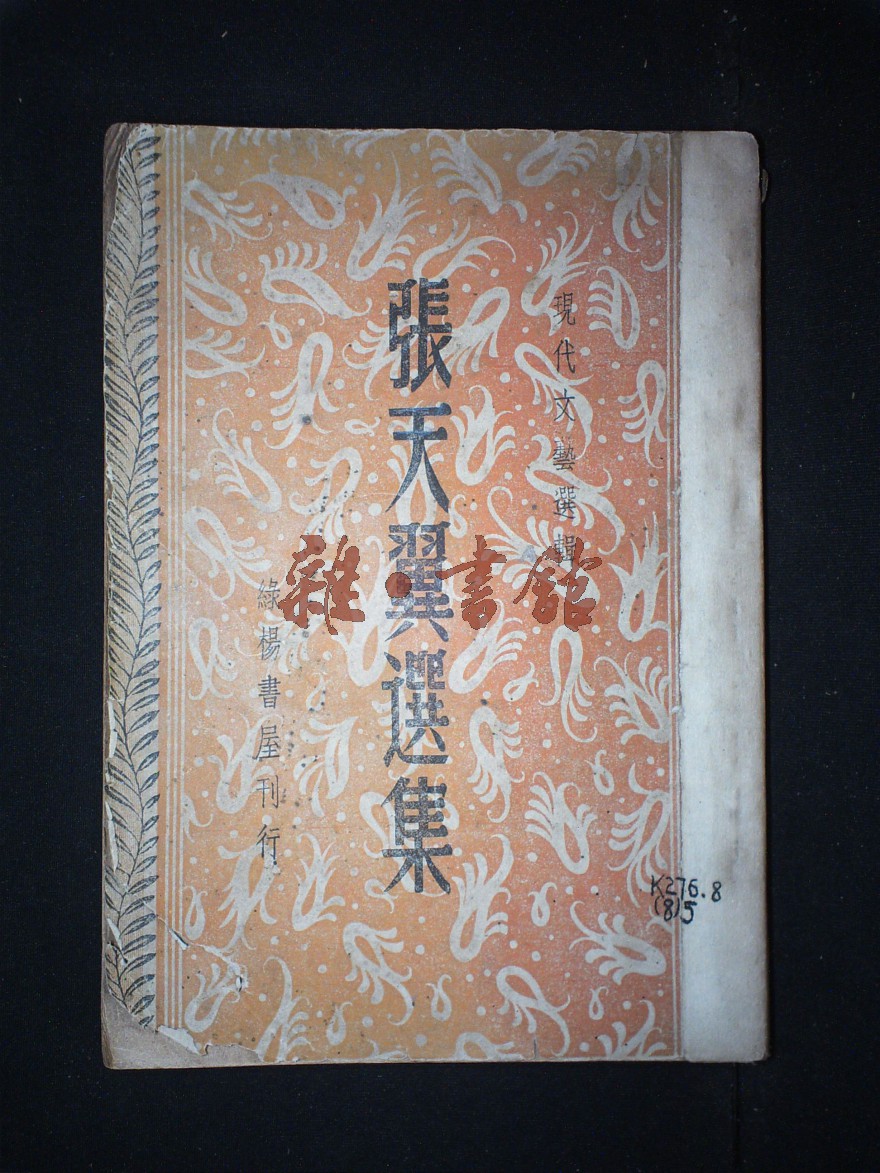 現代文藝選輯
張天翼選集
綠楊書屋刊行
雜·書館
K276.8
(8)5